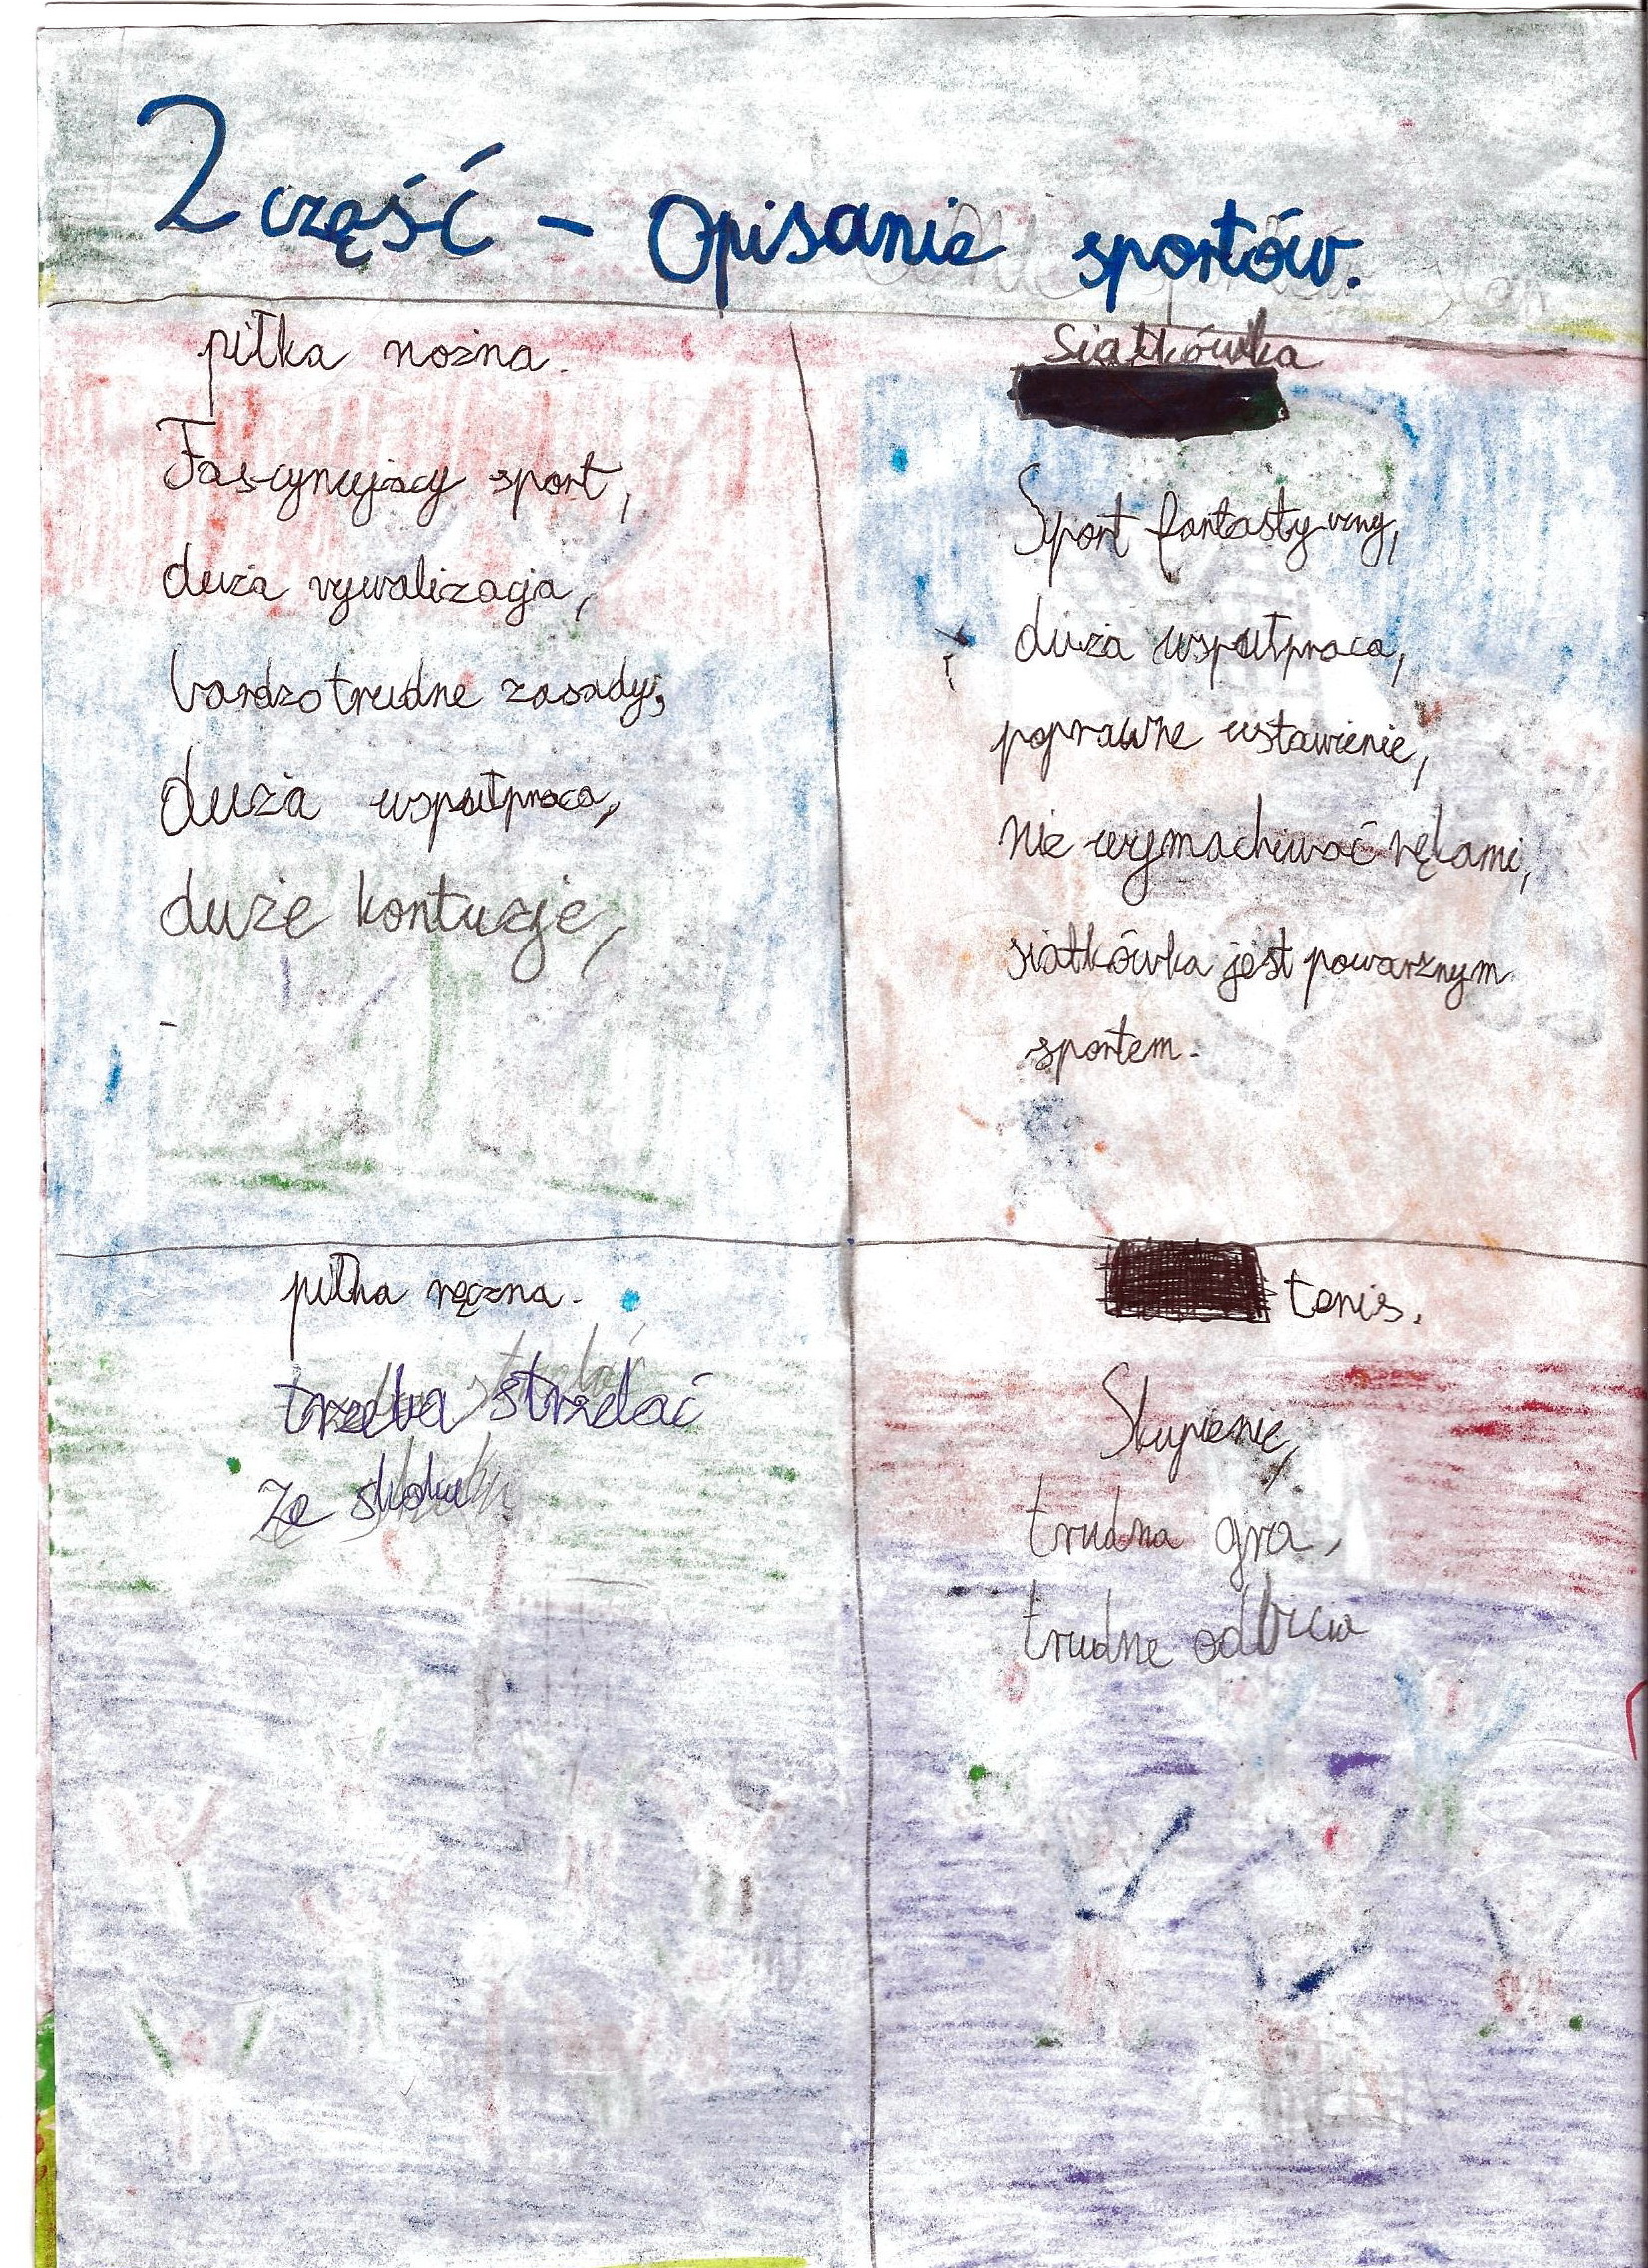 2 część - Opisanie sportów.
piłka nożna.
Fascynujący sport,
duża rywalizacja,
bardzo trudne zasady,
duża wspułpraca,
duże kontuzje,
siatkówka
Sport fantastyczny,
duża wspułpraca,
poprawne ustawienie,
nie wymachiwać rękami,
siatkówka jest powarznym
sportem.
piłka ręczna.
trzeba strzelać
ze skoku
tenis.
Skupienie,
trudna gra,
trudne odbicia